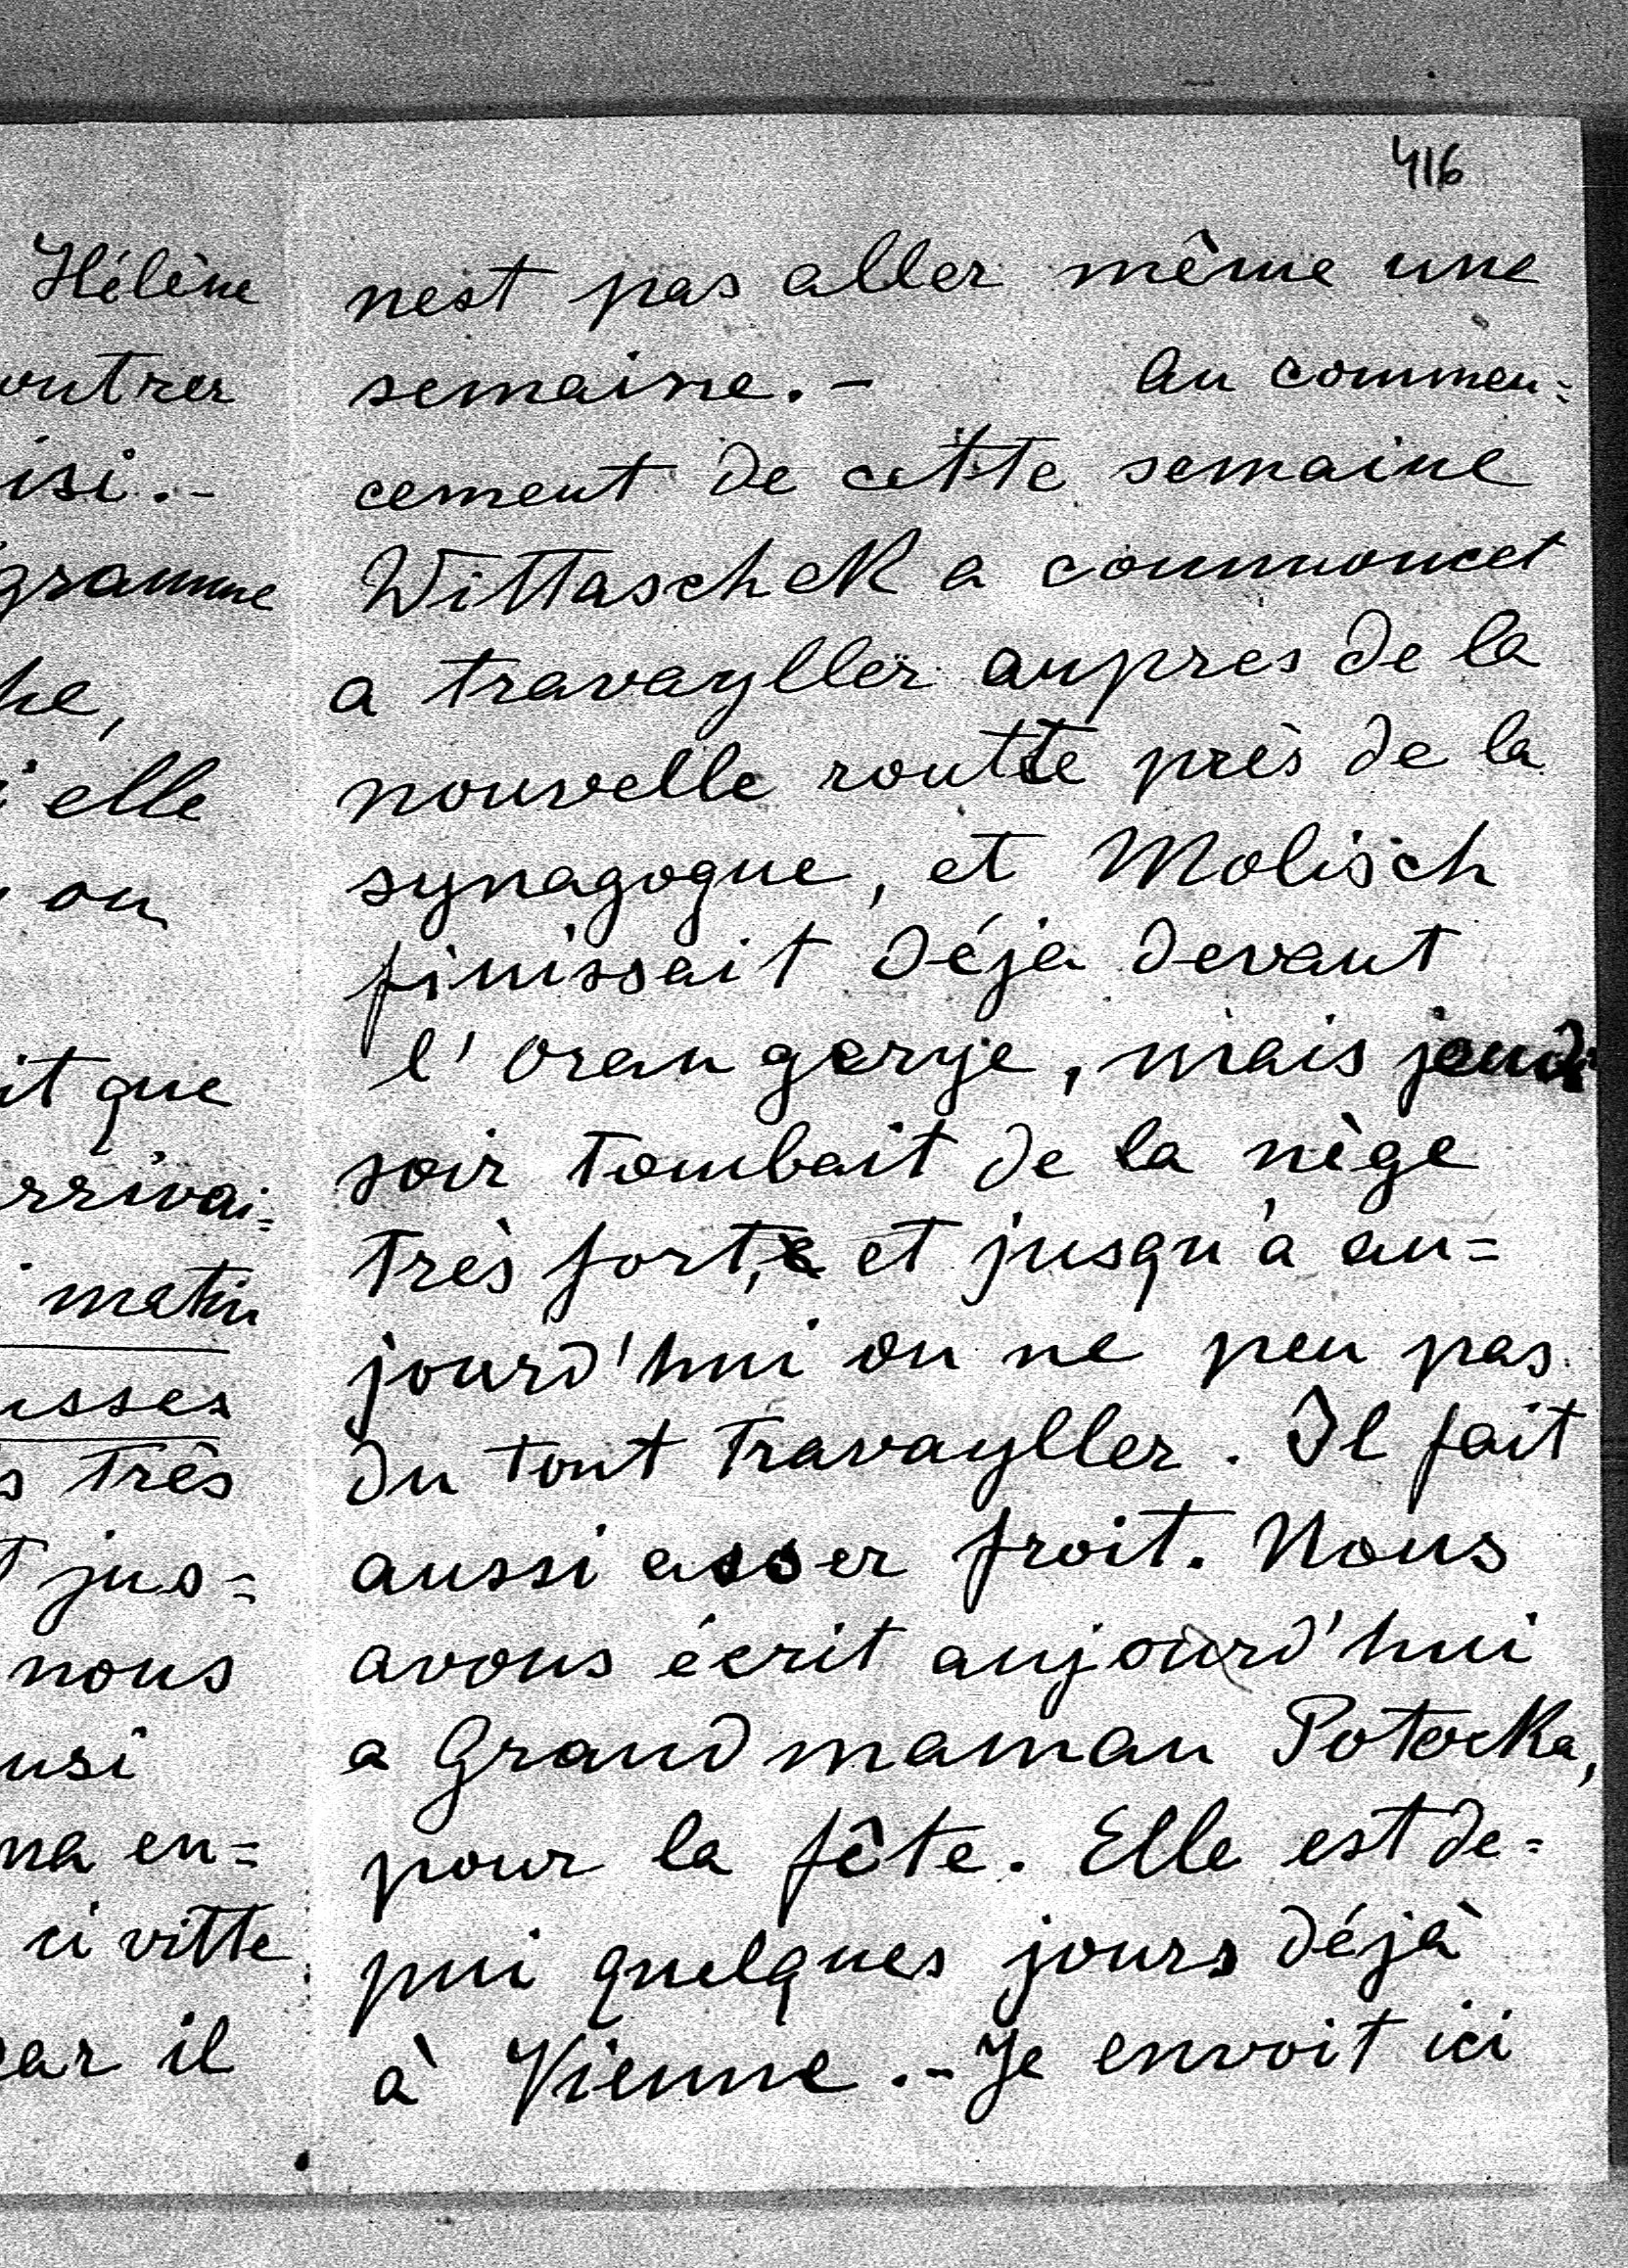 416
Hélène
outrer
isi.-
gramme
he,
i elle
ou
it que
rrivai=
matin
usses
s très
t jus=
nous
usi
na en=
ci vitte
car il
nest pas aller même une
semaine.- Au commen=
cement de cette semaine
Wittaschek a commoncet
a travayller aupres de la
nouvelle routte près de la
synagogue, et Molisch
finissait déja devant
l'orangerye, mais jeudi
soir tombait de la nège
très fort, et jusqu'à au=
jourd'hui on ne peu pas
du tout travayller. Il fait
aussi asser froit. Nous
avons écrit aujourd'hui
a Grand maman Potocka,
pour la fête. Elle est de=
pui quelques jours déjà
à Vienne.- Je envoit ici